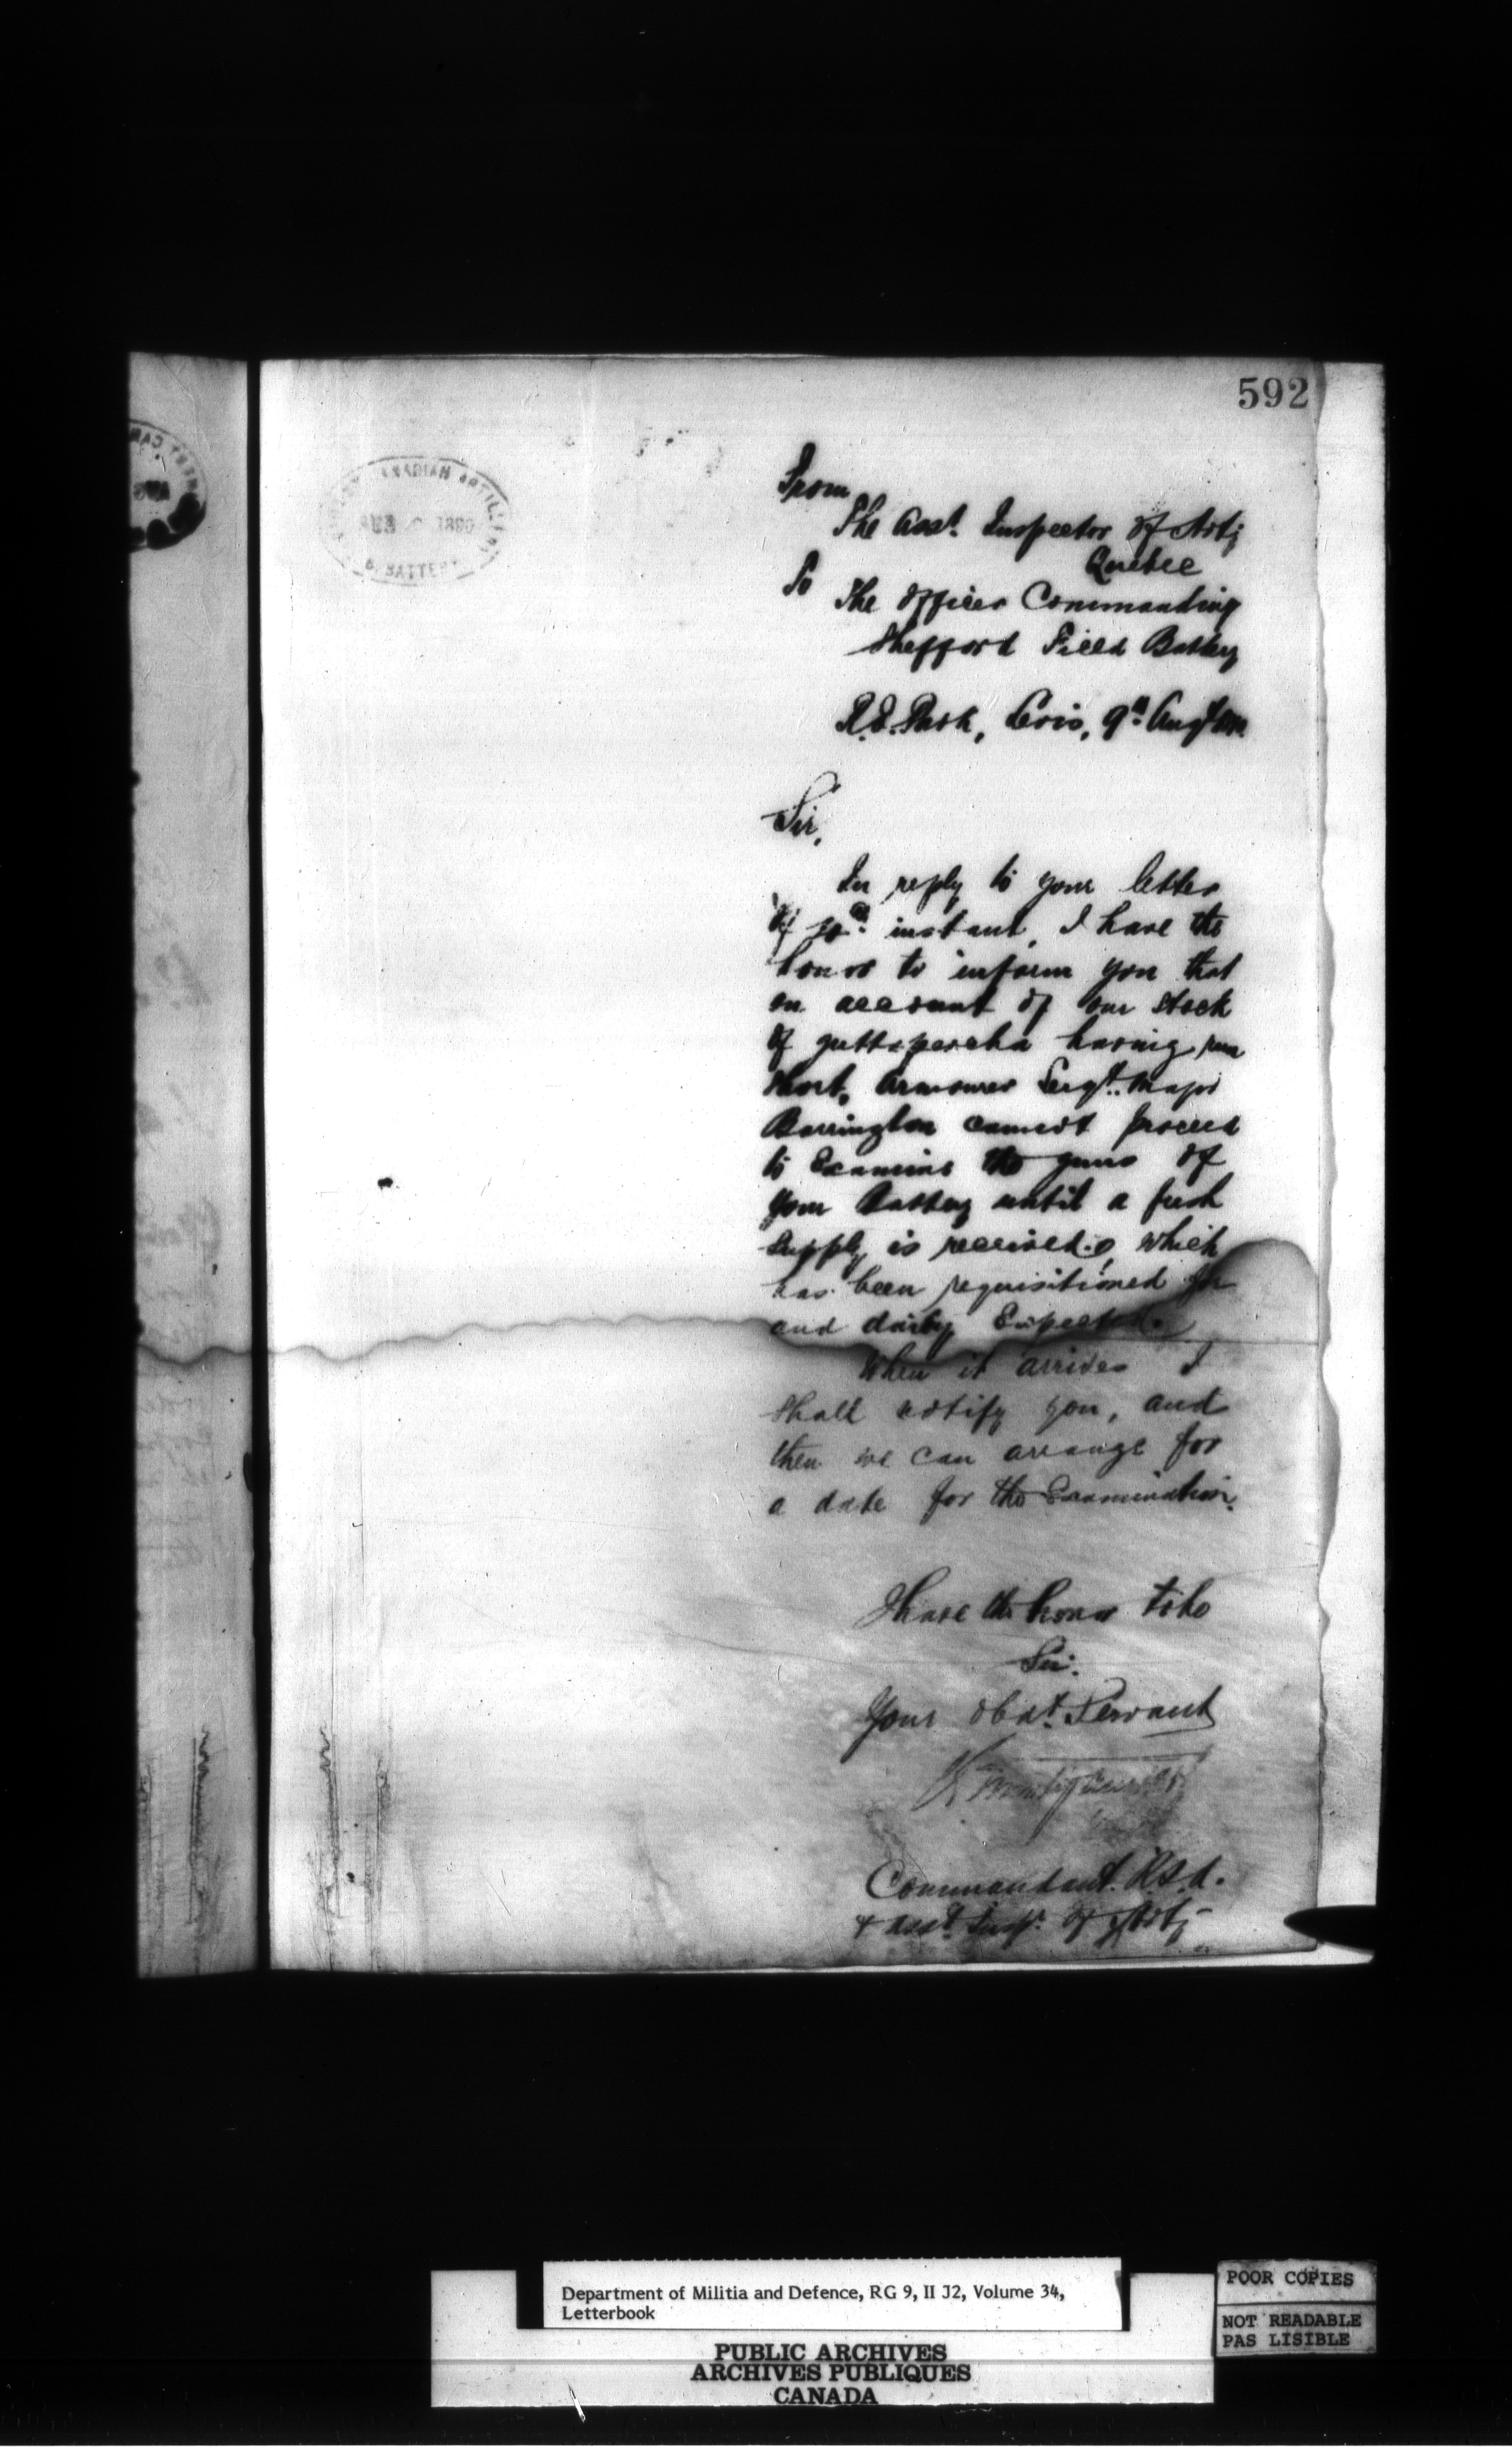 592
CANADIAN ARTILLERY
1890
B. BATTERY
From
The Asst. Inspector of Arty
Quebec
To The Officer Commanding
Shefford Field Battery
R.E. Park, Levis, 9th Augt
Sir,
In reply to your letter
of instant, I have the
honor to inform you that
on account of our stock
of guttapercha having run
short, Armourer Sergt. Major
Barrington cannot proceed
to Examine the guns of
your Battery until a fresh
supply is received, which
has been requisitioned for
and daily Expected.
When it arrives I
shall notify you, and
then we can arrange for
a date for the Examination.
I have the honor to be
Sir.
Your obdt. Servant
Commandant. R.S.A.
& Asst. Insp. of Arty
Department of Militia and Defence, RG 9, II J2, Volume 34,
Letterbook
PUBLIC ARCHIVES
ARCHIVES PUBLIQUES
CANADA
POOR COPIES
NOT READABLE
PAS LISIBLE